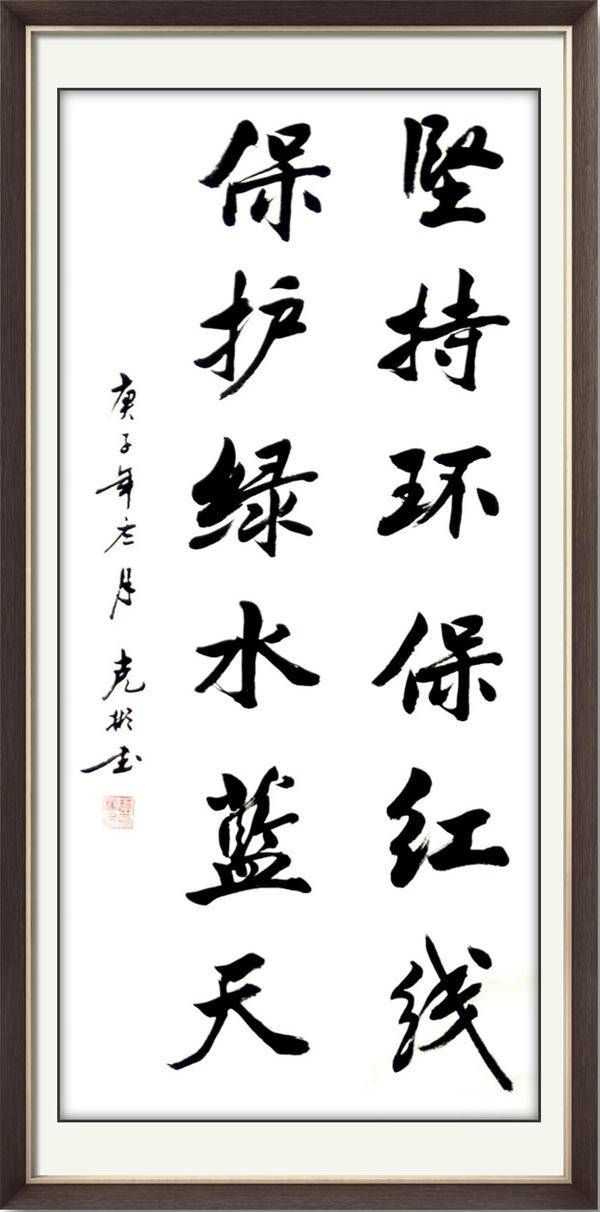 坚持环保红线
保护绿水蓝天
庚子年三月 克彬书